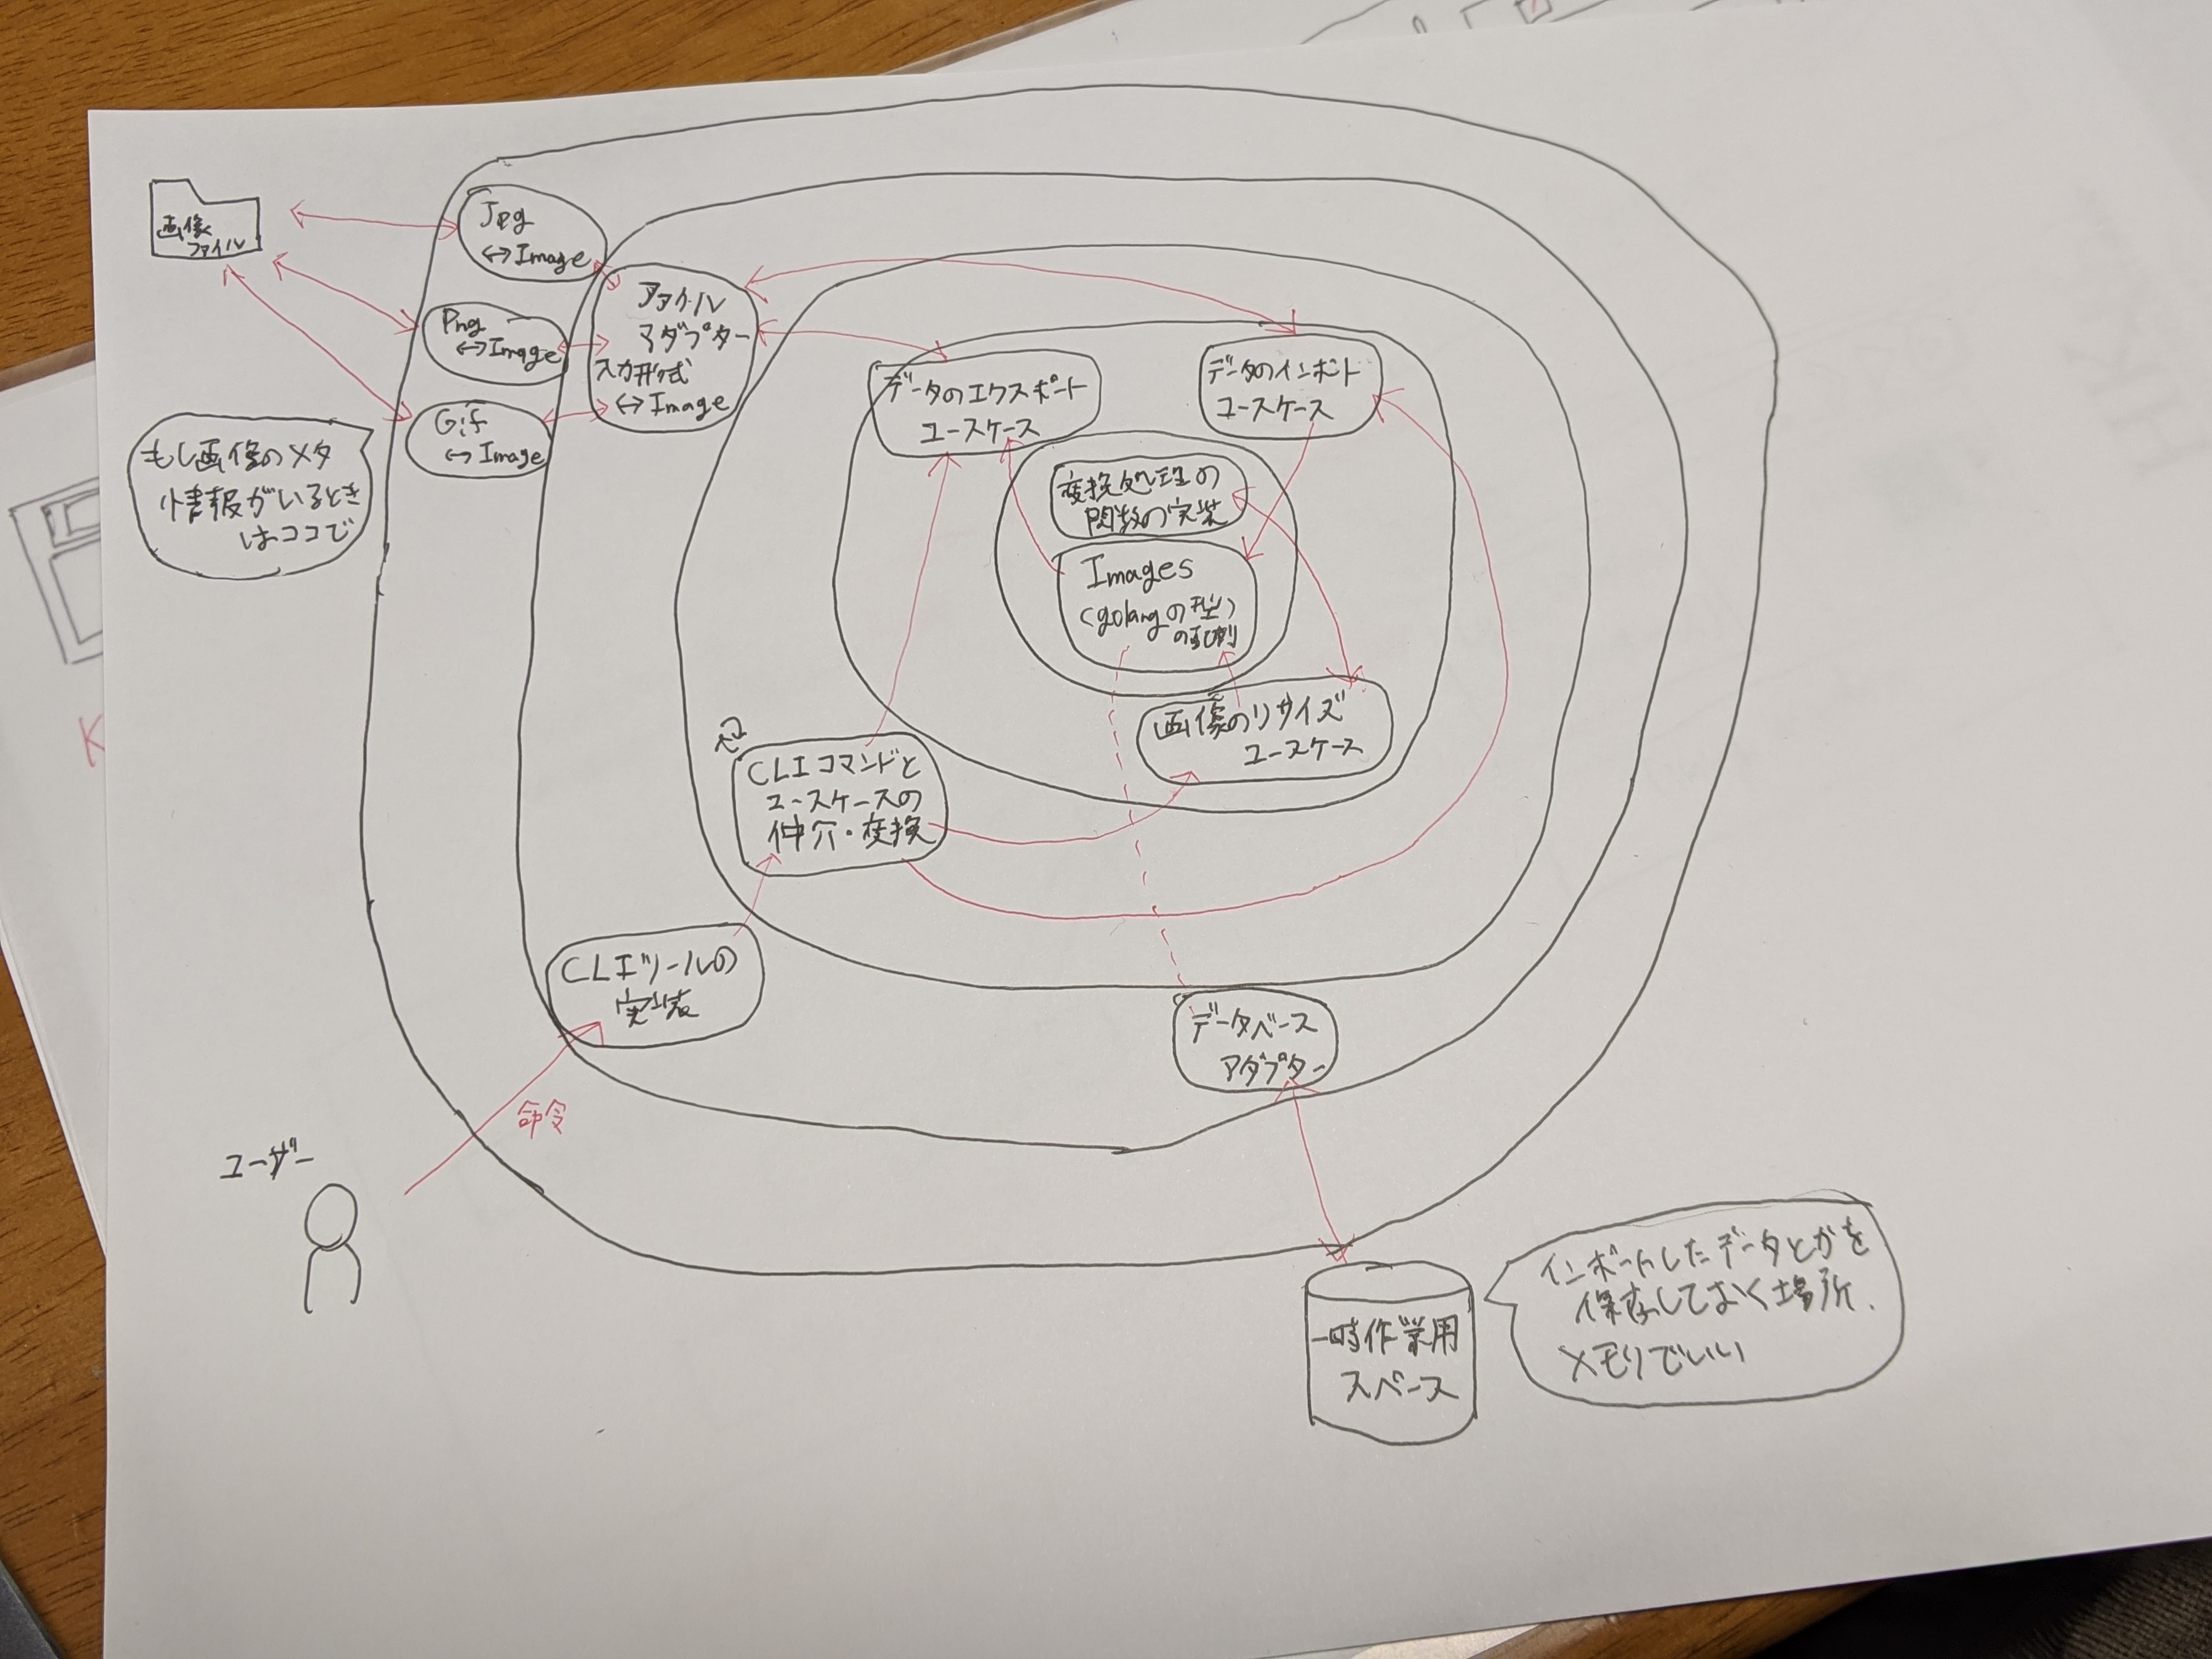 画像
ファイル
Jpg
↔Image
Png
↔Image
Gif
↔Image
もし画像のメタ
情報がいるとき
はココで
ファイル
アダプター
入力形式
↔Image
データのエクスポート
ユースケース
データのインポート
ユースケース
変換処理の
関数の実装
Images
(golangの型)
画像のリサイズ
ユースケース
CLIコマンドと
ユースケースの
仲介・変換
CLIツールの
実装
データベース
アダプター
命令
ユーザー
一時作業用
スペース
インポートしたデータとかを
保存しておく場所.
メモリでいい
K